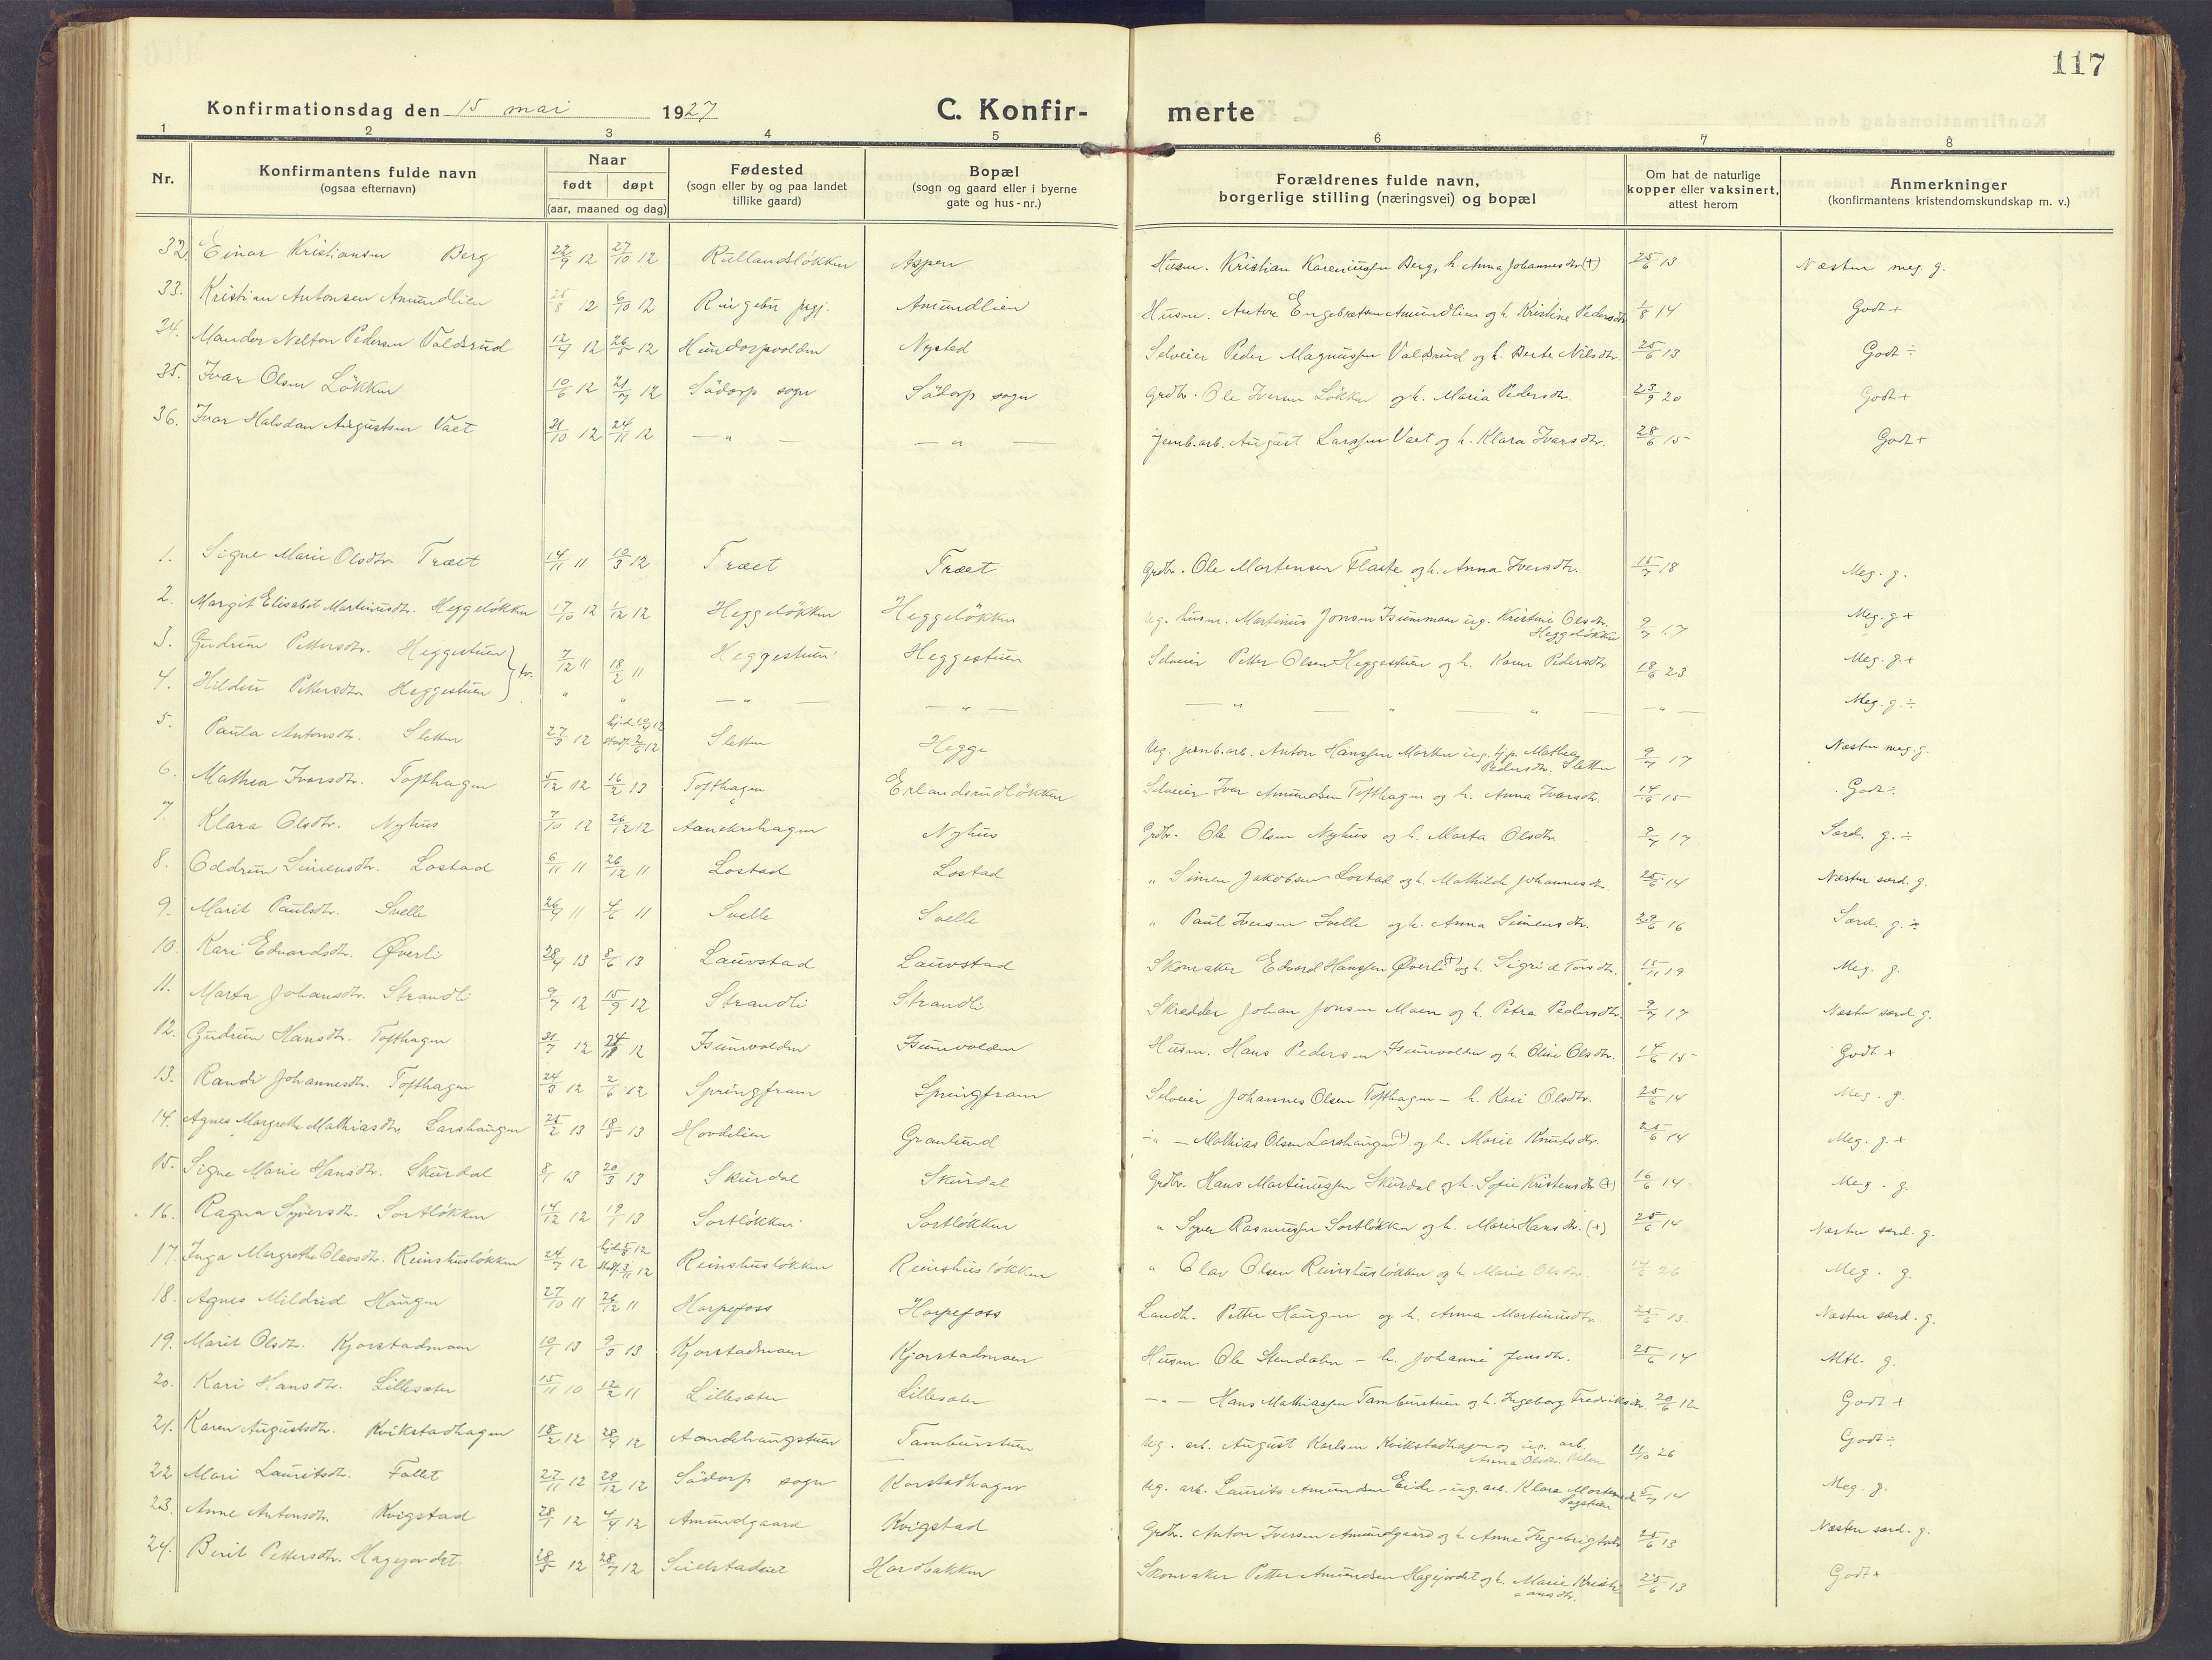 117
Konfirmationsdag den 15 mai 1927 C. Konfirmerte
1 2 3 4 5 6 7 8
Nr.
Konfirmantens fulde navn
(ogsaa efternavn)
Naar
født døpt
(aar, maaned og dag)
Fødested
(sogn eller by og paa landet
tillike gaard)
Bopæl
(sogn og gaard eller i byerne
gate og hus-nr.)
Forældrenes fulde navn,
borgerlige stilling (næringsvei) og bopæl
Om hat de naturlige
kopper eller vaksinert,
attest herom
Anmerkninger
(konfirmantens kristendomskundskap m. v.)
32. Einar Kristiansen Berg 22/9 12 27/10 12 Rullandsløkken Aspen Husm. Kristian Kareniussen Berg, h. Anna Johannesdtr (+) 25/6 13 Næsten meg. g.
33. Kristian Antonsen Amundlien 25/8 12 6/10 12 Ringebu prgj. Amundlien Husm. Anton Engebretsen Amundlien og h. Kristine Pedersdtr 1/8 14 Godt +
34. Mander Nelton Pedersen Valdsrud 12/4 12 26/5 12 Hundorpvolden Nysted Selveier Peder Magnussen Valdsrud og h. Berte Nilsdtr. 25/6 13 Godt ÷
35. Ivar Olsen Løkken 10/6 12 21/7 12 Södorp sogn Södorp sogn Grdbr. Ole Iversen Løkken og h. Maria Pedersdtr. 23/9 20 Godt +
36. Ivar Halvdan Augustsen Vaet 31/10 12 24/11 12 — " — — " — Jernb.arb. August Larssen Vaet og h. Klara Ivarsdtr. 28/6 15 Godt +
1. Signe Marie Olsdtr. Træet 14/11 11 10/3 12 Træet Træet Grdbr. Ole Mortensen Flaate og h. Anna Iversdtr. 15/7 18 Meg. g.
2. Margit Elisabet Martinusdtr. Heggeløkken 17/10 12 1/12 12 Heggeløkken Heggeløkken Ug. husm. Martinus Jonsen Isummoen ug. Kristine Olsdtr. Heggeløkken 9/7 17 Meg. g +
3. Gudrun Pettersdtr. Heggestuen } tv. 7/12 11 18/2 11 Heggestuen Heggestuen Selveier Petter Olsen Heggestuen og h. Karen Pedersdtr 18/6 23 Meg. g. +
4. Hildur Pettersdtr. Heggestuen " " — " — — " — — " " " — — " — Meg. g. ÷
5. Paula Antonsdtr. Sletten 27/3 12 stadf. 2/6 12 Sletten Hegge Ug. jernb.arb. Anton Hanssen Morken ug. tj.p. Mathea Pedersdtr. Sletten 9/7 17 Næsten meg. g.
6. Mathea Ivarsdtr. Tofthagen 5/12 12 16/2 13 Tofthagen Erlandsrudløkken Selveier Ivar Amundsen Tofthagen og h. Anna Ivarsdtr. 14/6 15 Godt ÷
7. Klara Olsdtr. Nyhus 7/10 12 26/12 12 Aanekrehagen Nyhus Grdbr. Ole Olsen Nyhus og h. Marta Olsdtr. 9/7 17 Særd. g. ÷
8. Oddrun Simensdtr. Lostad 6/11 11 26/12 11 Lostad Lostad " Simen Jakobsen Lostad og h. Mathilde Johannesdtr. 25/6 14 Næsten særd. g.
9. Marit Paulsdtr. Svelle 26/4 11 4/6 11 Svelle Svelle " Paul Iversen Svelle og h. Anna Simensdtr. 29/6 16 Særd. g. ÷
10. Kari Edvardsdtr. Øverli 28/4 13 8/6 13 Lauvstad Lauvstad Skomaker Edvard Hanssen Øverli (+) og h. Sigrid Torsdtr. 15/11 19 Meg. g.
11. Marta Johansdtr. Strandli 9/7 12 15/9 12 Strandli Strandli Skrædder Johan Jonsen Moen og h. Petra Pedersdtr. 9/7 17 Næsten særd. g.
12. Gudrun Hansdtr. Tofthagen 31/7 12 24/11 12 Isumvolden Isumvolden Husm. Hans Pedersen Isumvolden og h. Oline Olsdtr. 14/6 15 Godt +
13. Randi Johannesdtr. Tofthagen 24/3 12 2/6 12 Springfram Springfram Selveier Johannes Olsen Tofthagen – h. Kari Olsdtr. 25/6 14 Meg. g.
14. Agnes Margrethe Mathiasdtr. Larshaugen 25/2 13 18/5 13 Hovdelien Granlund — " — Mathias Olsen Larshaugen (+) og h. Marie Knutsdtr. 25/6 14 Meg. g. +
15. Signe Marie Hansdtr. Skurdal 8/1 13 20/3 13 Skurdal Skurdal Grdbr. Hans Martinussen Skurdal og h. Sofie Kristensdtr (+) 16/6 14 Meg. g.
16. Ragna Syversdtr. Sortløkken 14/12 12 19/1 13 Sortløkken Sortløkken " Syver Rasmussen Sortløkken og h. Marie Hansdtr. (+) 25/6 14 Næsten særd. g.
17. Inga Margrethe Olavsdtr. Reinshusløkken 24/7 12 stadf. 3/11 12 Reinshusløkken Reinshusløkken " Olav Olsen Reinshusløkken og h. Marie Olsdtr. 14/6 26 Meg. g.
18. Agnes Mildrid Haugen 27/10 11 26/12 11 Harpefoss Harpefoss Landh. Petter Haugen og h. Anna Martinusdtr. 25/6 13 Næsten særd. g.
19. Marit Olsdtr. Kjorstadmoen 10/1 13 9/3 13 Kjorstadmoen Kjorstadmoen Husm. Ole Stendalen – h. Johanne Jensdtr. 25/6 14 Mtl. g.
20. Kari Hansdtr. Lillesæter 15/11 10 12/2 11 Lillesæter Lillesæter — " — Hans Mathiassen Tamburstuen og h. Ingeborg Fredriksdtr. 20/6 12 Godt +
21. Karen Augustsdtr. Kvikstadhagen 18/2 12 28/4 12 Aandehaugstuen Tamburstuen Ug. arb. August Karlsen Kvikstadhagen og ug. arb. Anna Olsdtr. 11/10 26 Godt ÷
22 Mari Lauritsdtr. Fallet 27/11 12 29/12 12 Södorp sogn Korstadhagen Ug. arb. Laurits Amundsen Eide – ug. arb. Klara Mortensdtr. 5/7 14 Meg. g.
23. Anne Antonsdtr. Kvigstad 28/1 12 4/4 12 Amundgaard Kvigstad Grdbr. Anton Iversen Amundgaard og h. Anne Ingebrigtsdtr 25/6 13 Næsten særd. g.
24. Berit Pettersdtr. Hagejordet 28/5 12 28/7 12 Hardbakken Skomaker Petter Amundsen Hagejordet og h. Marie Kristi= ansdtr. 25/6 13 Godt +